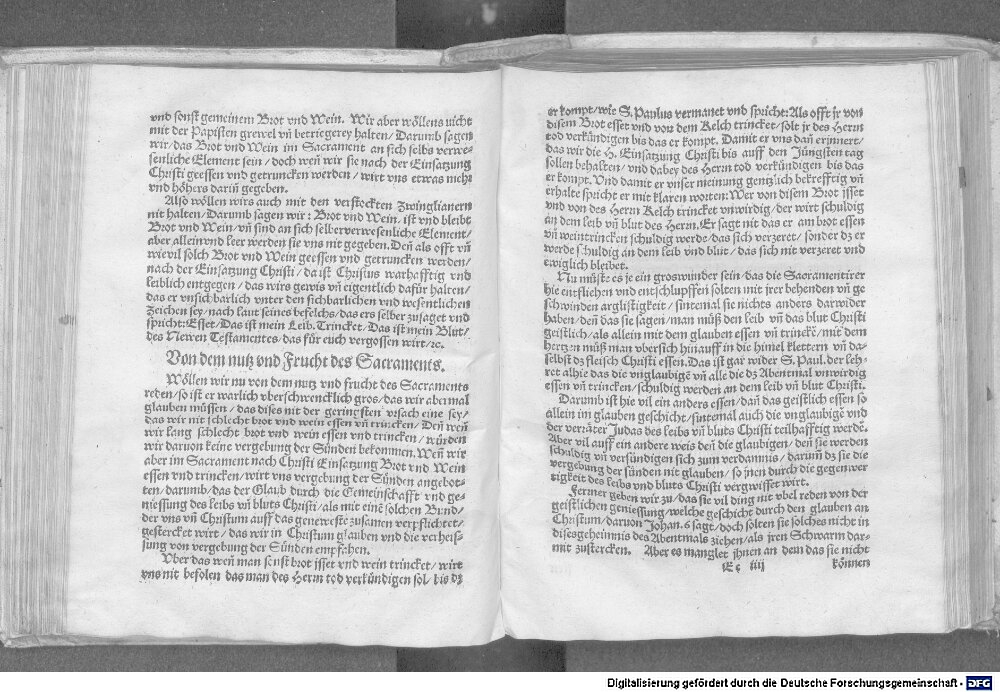 vnd sonst gemeinem Brot vnd Wein. Wir aber wöllens nicht
mit der Papisten grewel vñ betriegerey halten / Darumb sagen
wir / das Brot vnd Wein im Sacrament an sich selbs verwe-
senliche Element sein / doch weñ wir sie nach der Einsatzung
Christi geessen vnd getruncken werden / wirt vns etwas mehr
vnd höhers dariñ gegeben.
Also wöllen wirs auch mit den verstockten Zwinglianern
nit halten / Darumb sagen wir: Brot vnd Wein, ist vnd bleibt
Brot vnd Wein / vñ sind an sich selber verwesenliche Element /
aber allein vnd leer werden sie vns nit gegeben. Deñ als offt vñ
wievil solch Brot vnd Wein geessen vnd getruncken werden /
nach der Einsatzung Christi / da ist Christus warhafftig vnd
leiblich entgegen / das wirs gewis vñ eigentlich dafür halten /
das er vnsichbarlich vnter den sichbarlichen vnd wesentlichen
Zeichen sey / nach laut seines befelchs / das ers selber zusaget vnd
spricht: Esset / Das ist mein Leib. Trincket / Das ist mein Blut /
des Newen Testamentes / das für euch vergossen wirt / ꝛc.
Von dem nutz vnd Frucht des Sacraments.
Wöllen wir nu von dem nutz vnd frucht des Sacraments
reden / so ist er warlich vberschwencklich gros / das wir abermal
glauben müssen / das dises nit der geringsten vrsach eine sey /
das wir nit schlecht brot vnd wein essen vñ trincken / Den weñ
wir lang schlecht brot vnd wein essen vnd trincken / würden
wir daruon keine vergebung der Sünden bekommen. Weñ wir
aber im Sacrament nach Christi Einsatzung Brot vnd Wein
essen vnd trincken / wirt vns vergebung der Sünden angebot-
ten / darumb / das der Glaub durch die Gemeinschafft vnd ge-
niessung des leibs vñ bluts Christi / als mit einē solchen Bund /
der vns vñ Christum auff das geneweste zusamen verpflichtet /
gestercket wirt / das wir in Christum glauben vnd die verheis-
sung von vergebung der Sünden empfahen.
Vber das weñ man sonst brot isset vnd wein trincket / wirt
vns nit befolen das man des Herrn tod verkündigen sol / bis dz
er kompt / wie S. Paulus vermanet vnd spricht: Als offt jr von
disem Brot esset vnd von dem Kelch trincket / solt jr des Herrn
tod verkündigen bis das er kompt. Damit er vns dañ erinnert /
das wir die H. Einsatzung Christi bis auff den Jüngsten tag
sollen behalten / vnd dabey des Herrn tod verkündigen bis das
er kompt. Vnd damit er vnser meinung gentzlich bekrefftig vñ
erhalte spricht er mit klaren worten: Wer von disem Brot jsset
vnd von des Herrn Kelch trincket vnwirdig / der wirt schuldig
an dem leib vñ blut des Herrn. Er sagt nit das er am brot essen
vñ weintrincken schuldig werde / das sich verzeret / sonder dz er
werde schuldig an dem leib vnd blut / das sich nit verzeret vnd
ewiglich bleibet.
Nu müste es je ein groswunder sein / das die Sacramentirer
hie entfliehen vnd entschlupffen solten mit jrer behenden vñ ge
schwinden arglistigkeit / sintemal sie nichts anders darwider
haben / deñ das sie sagen / man müß den leib vñ das blut Christi
geistlich / als allein mit dem glauben essen vñ trinckē / mit dem
hertzen müß man vbersich hinauff in die himel klettern vñ da-
selbst dz fleisch Christi essen. Das ist gar wider S. Paul. der leh-
ret alhie das die vnglaubigē vñ alle die dz Abentmal vnwirdig
essen vñ trincken / schuldig werden an dem leib vñ blut Christi.
Darumb ist hie vil ein anders essen / dañ das geistlich essen so
allein im glauben geschicht / sintemal auch die vnglaubigē vnd
der verräter Judas des leibs vñ bluts Christi teilhafftig werdē.
Aber vil auff ein andere weis deñ die glaubigen / deñ sie werden
schuldig vñ versündigen sich zum verdamnis / darum̄ dz sie die
vergebung der sünden nit glauben / so jnen durch die gegenwer
tigkeit des leibs vnd bluts Christi vergwisset wirt.
Ferrner geben wir zu / das sie vil ding nit vbel reden von der
geistlichen geniessung / welche geschicht durch den glauben an
Christum / daruon Johan. 6 sagt / doch solten sie solches nicht in
dises geheimnis des Abentmals ziehen / als jren Schwarm dar-
mit zustercken. Aber es manglet jhnen an dem das sie nicht
Ee iiij können
Digitalisierung gefördert durch die Deutsche Forschungsgemeinschaft - DFG